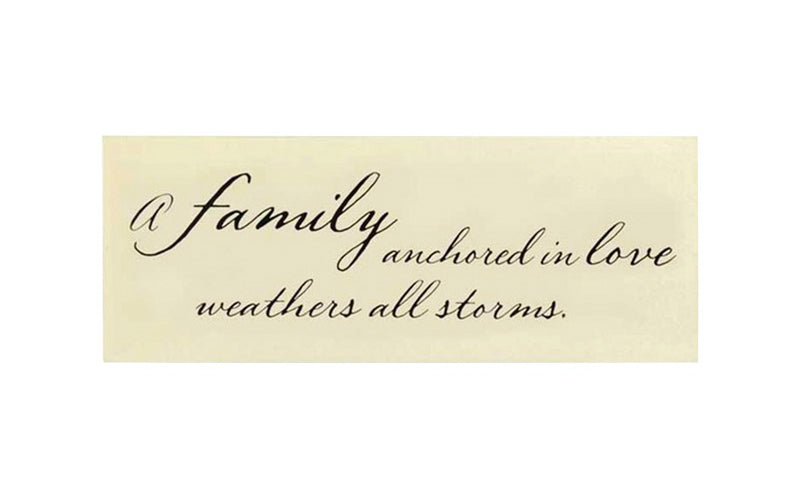 A family anchored in love
weathers all storms.